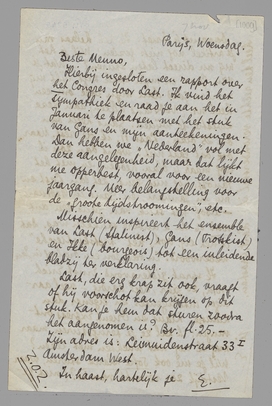 Parijs, Woensdag.
Beste Menno,
Hierbij ingesloten een rapport over
het Congres door Last. Ik vind het
sympathiek en raad je aan het in
Januari te plaatsen met het stuk
van Gans en mijn aanteekeningen.
Dan hebben we "Nederland" vol met
deze aangelegenheid, maar dat lijkt
me opperbest, vooral voor een nieuwe
jaargang. Meer belangstelling voor
de "groote tijdstroomingen", etc.
Misschien inspireert het ensemble
van Last (stalinist), Gans (trotskist)
en Ikke (bourgeois) tot een inleidende
bladzij ter verklaring.
Last, die erg krap zit ook, vraagt
of hij voorschot kan krijgen op dit
stuk. Kan je hem dat sturen zoodra
het aangenomen is? Bv. fl. 25.—
Zijn adres is: Leimuidenstraat 33 I
Amsterdam West.
In haast, hartelijk je E.
z.o.z.